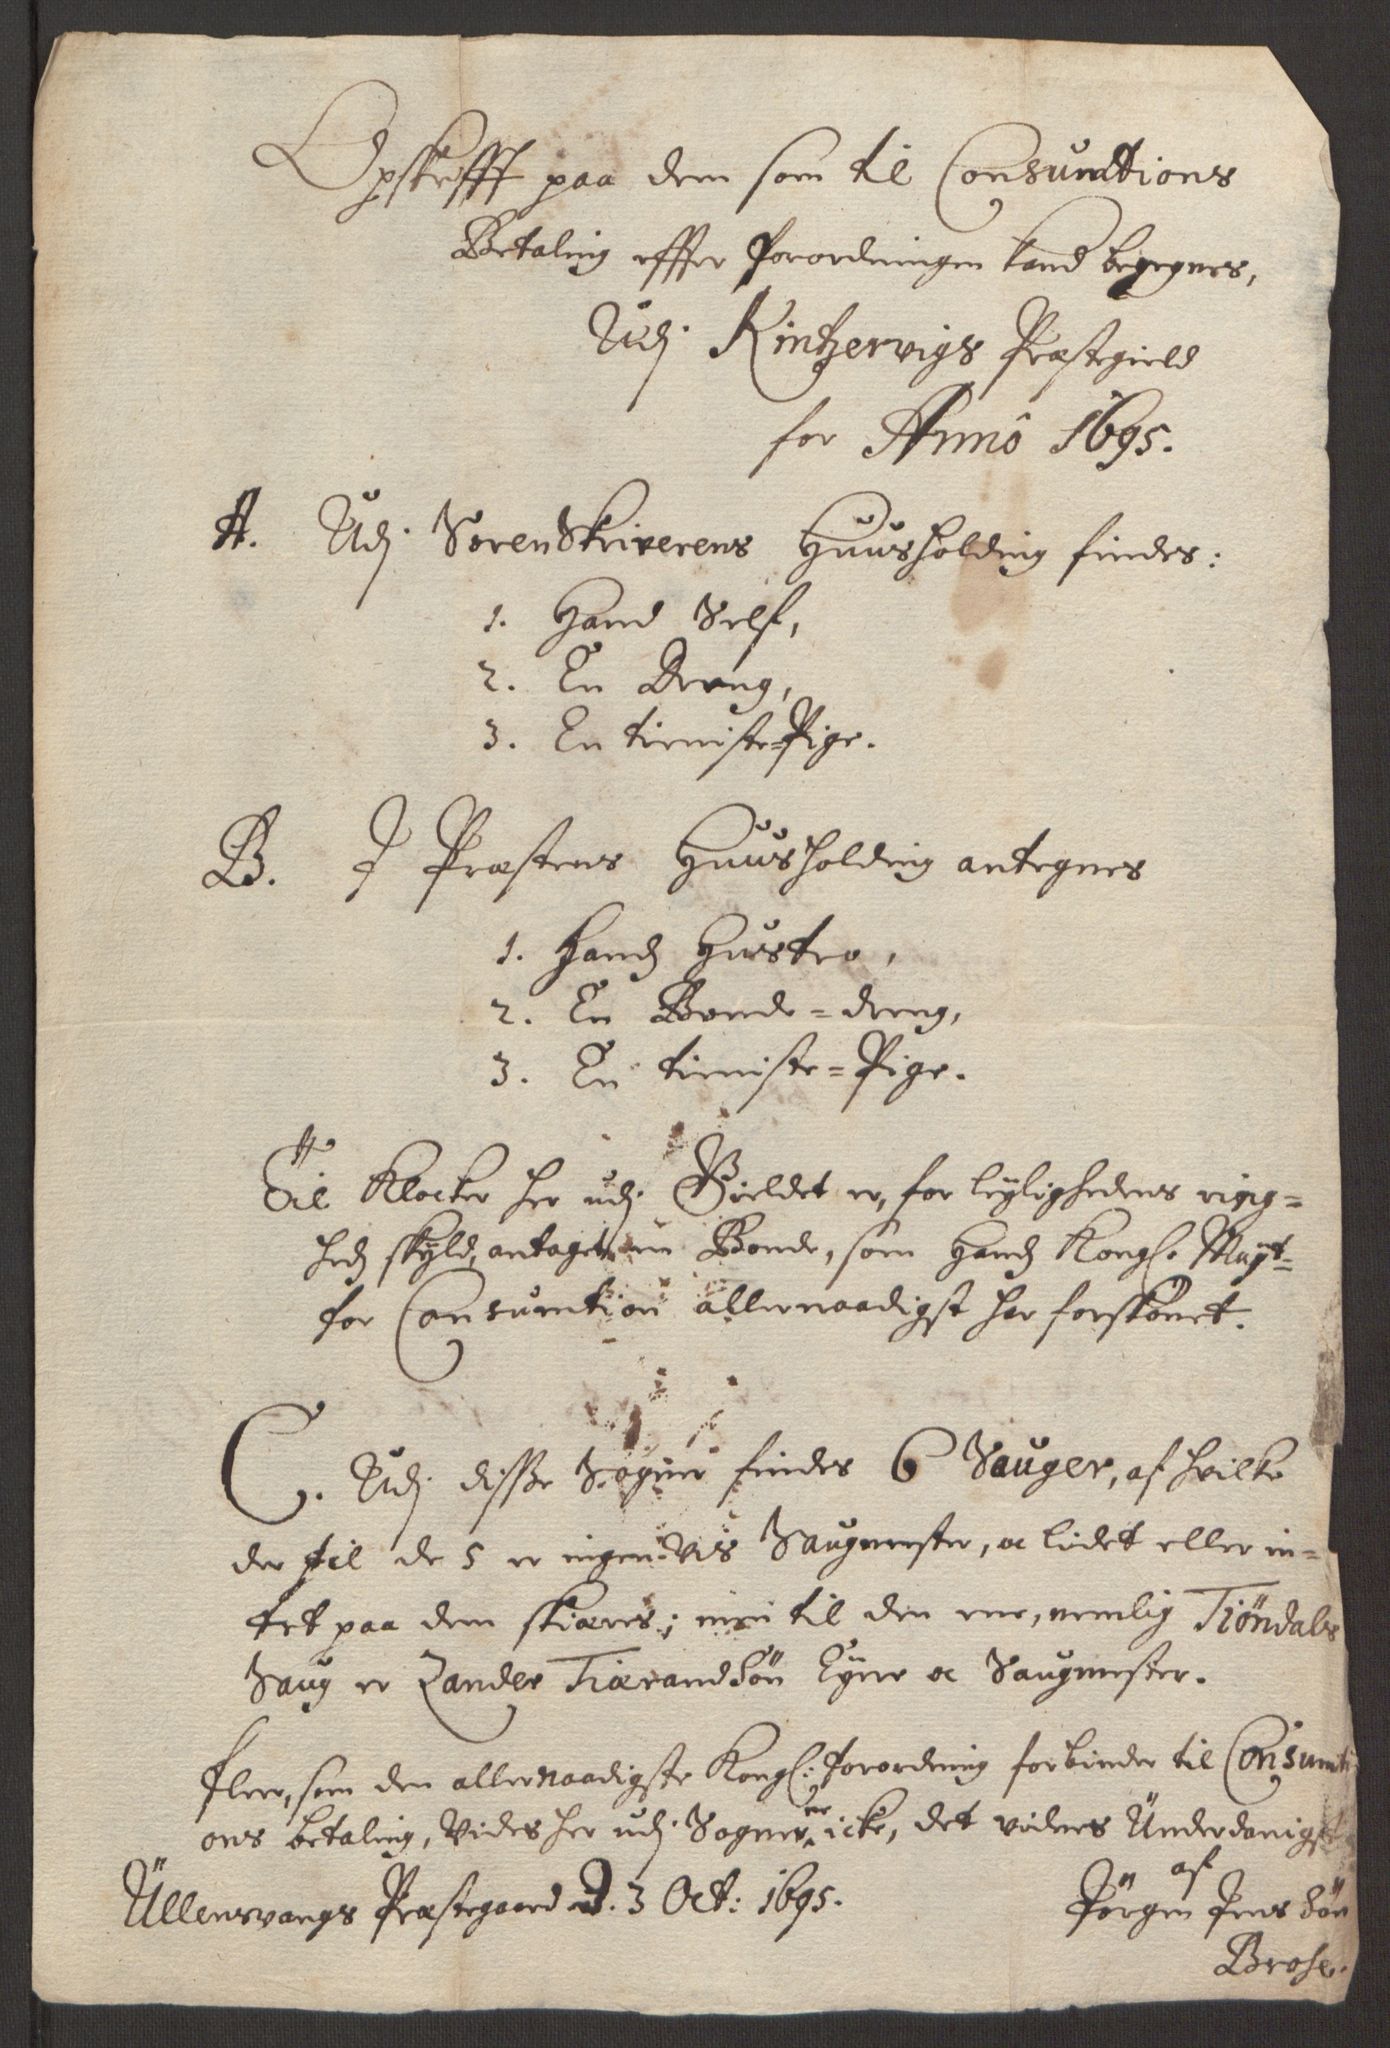 Opskrifft paa dem som til Consumtions
Betaling effter Forordningen kand begegnes,
Udj Kintzervigs Præstegield
for Annô 1695.
A. Udj SorenSkriverens Huusholding findes:
1. Hand Self,
2. En Dreng,
3. En tieniste-Pige.
B. J Præstens Huusholding antegnes
1. Hands Hustro,
2. En Bonde-dreng,
3. En tieniste-Pige.
Til Klocker her udj Gieldet er, for leylighedens ring-
heds skyld, antaget en Bonde, som Hands Kongl. Mayt-
for Consumtion allernaadigst har forskônet.
C. Udj disse Sogner findes 6 Sauger, af hvilke
der til de 5 er ingen vis Saugmester, oc lidet eller in-
tet paa dem skiæres; men til den ene, nemlig Tiöndals
Saug er Zander Tiærandsön Eyer oc Saugmester.
Fleer, som den allernaadigste Kongl: Forordning forbinder til Consumti-
ons betaling, vides her udj Sognerne icke, det vidnes Underdanigst
af
Üllensvangs Præstegaard d. 3 Oct: 1695. Jörgen Jens Sön
Brose.